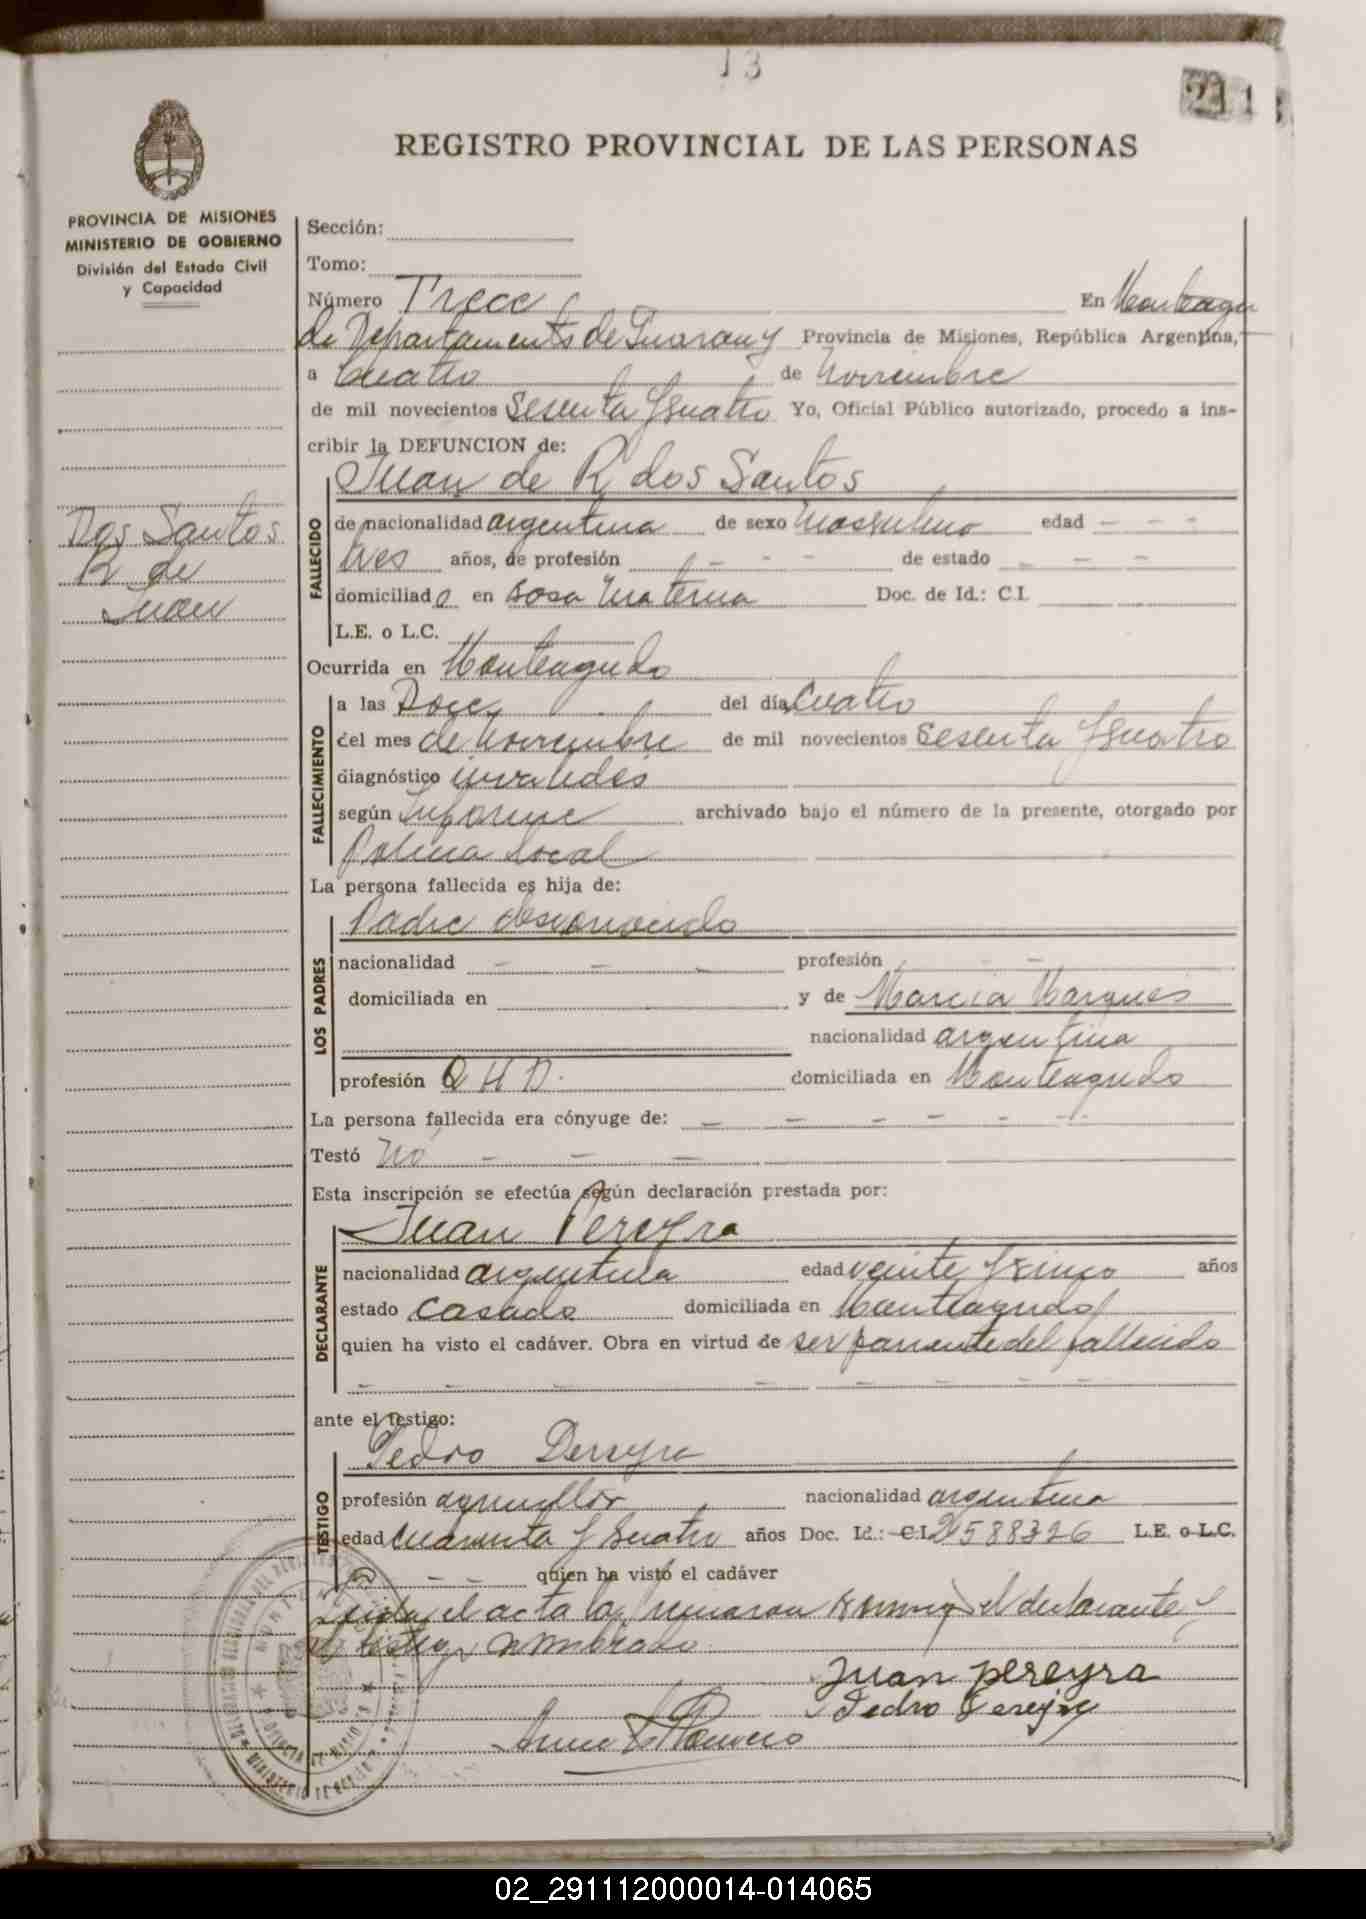 13
211
REGISTRO PROVINCIAL DE LAS PERSONAS
PROVINCIA DE MISIONES
MINISTERIO DE GOBIERNO
División del Estado Civil
y Capacidad
Dos Santos
R de
Juan
Sección:
Tomo:
Número Trece En Monteagu
do Departamento de Guarany Provincia de Misiones, República Argentina,
a Cuatro de Noviembre
de mil novecientos Sesenta y Cuatro Yo, Oficial Público autorizado, procedo a ins-
cribir la DEFUNCION de:
Juan de R dos Santos
FALLECIDO
de nacionalidad argentina de sexo Masculino edad - - -
tres años, de profesión - - - de estado - - -
domiciliado en Casa Materna Doc. de Id.: C.I.
L.E. o L.C.
Ocurrida en Monteagudo
FALLECIMIENTO
a las Doce del día Cuatro
del mes de Noviembre de mil novecientos Sesenta y Cuatro
diagnóstico invalides
según Informe archivado bajo el número de la presente, otorgado por
Policia Local
La persona fallecida es hija de:
LOS PADRES
Padre desconocido
nacionalidad - - - profesión - - -
domiciliada en y de Marcia Marques
nacionalidad argentina
profesión Q H D. domiciliada en Monteagudo
La persona fallecida era cónyuge de: - - - - -
Testó No - - -
Esta inscripción se efectúa según declaración prestada por:
DECLARANTE
Juan Pereyra
nacionalidad argentina edad veinte y cinco años
estado casado domiciliada en Monteagudo
quien ha visto el cadáver. Obra en virtud de ser pariente del fallecido
- - - - - - - -
ante el testigo:
TESTIGO
Pedro Pereyra
profesión agricultor nacionalidad argentina
edad cuarenta y cuatro años Doc. Id.: C.I. 2588326 L.E. o L.C.
- - quien ha visto el cadáver
Leida el acta la firmaron conmigo el declarante y
el testigo nombrado
Juan pereyra
Pedro Pereyra
Romero
02_291112000014-014065